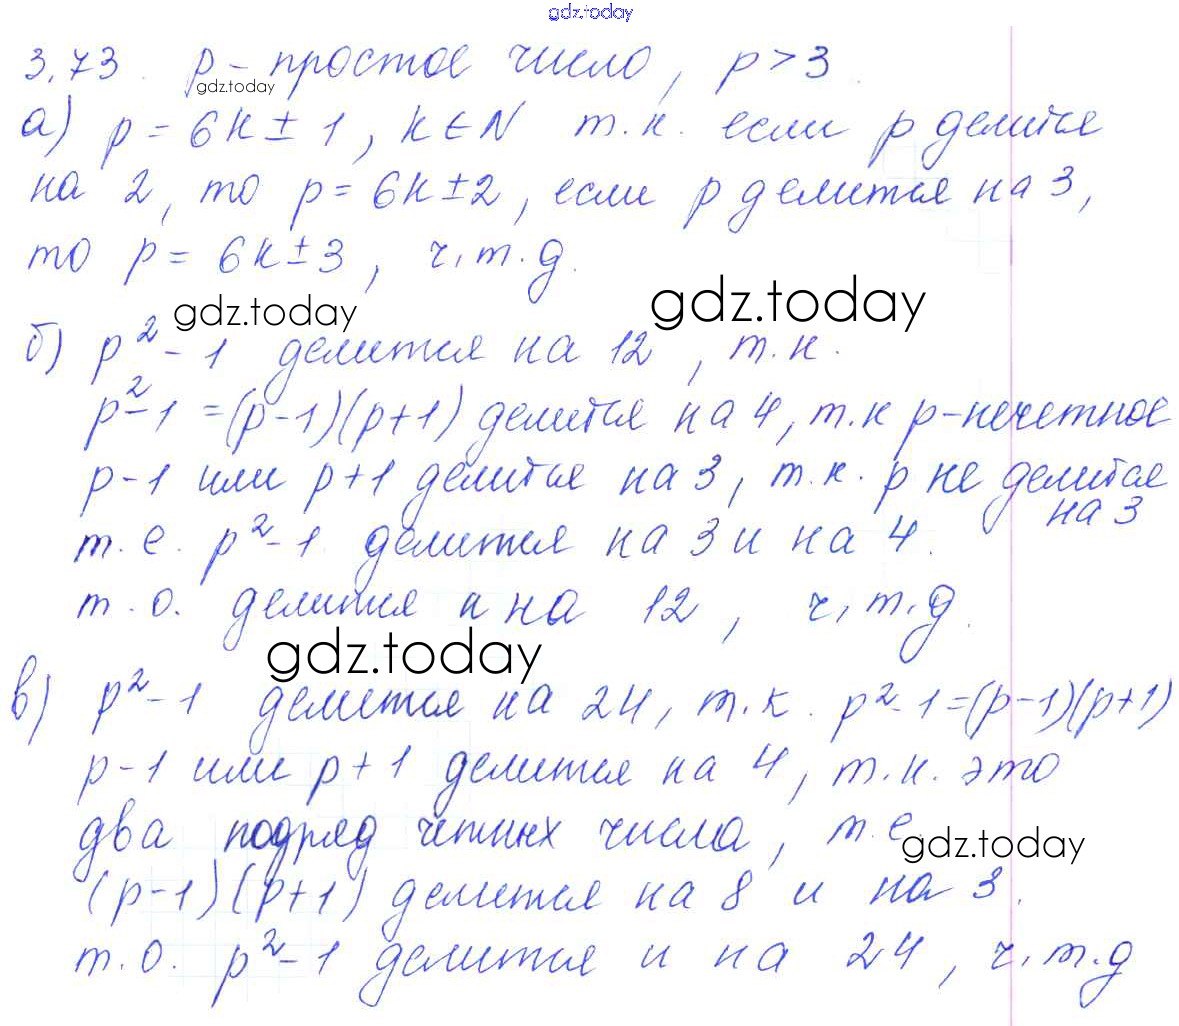 gdz.today
3.73. p - простое число, p > 3
gdz.today
а) p = 6k ± 1, k ∈ N т.к. если p делится
на 2, то p = 6k ± 2, если p делится на 3,
то p = 6k ± 3, ч.т.д.
gdz.today gdz.today
б) p² - 1 делится на 12, т.к.
p² - 1 = (p-1)(p+1) делится на 4, т.к p - нечетное
p-1 или p+1 делится на 3, т.к. p не делится
на 3
т.е. p² - 1 делится на 3 и на 4.
т.о. делится и на 12, ч.т.д.
gdz.today
в) p² - 1 делится на 24, т.к. p² - 1 = (p-1)(p+1)
p-1 или p+1 делится на 4, т.к. это
два подряд четных числа, т.е.
gdz.today
(p-1)(p+1) делится на 8 и на 3.
т.о. p² - 1 делится и на 24, ч.т.д